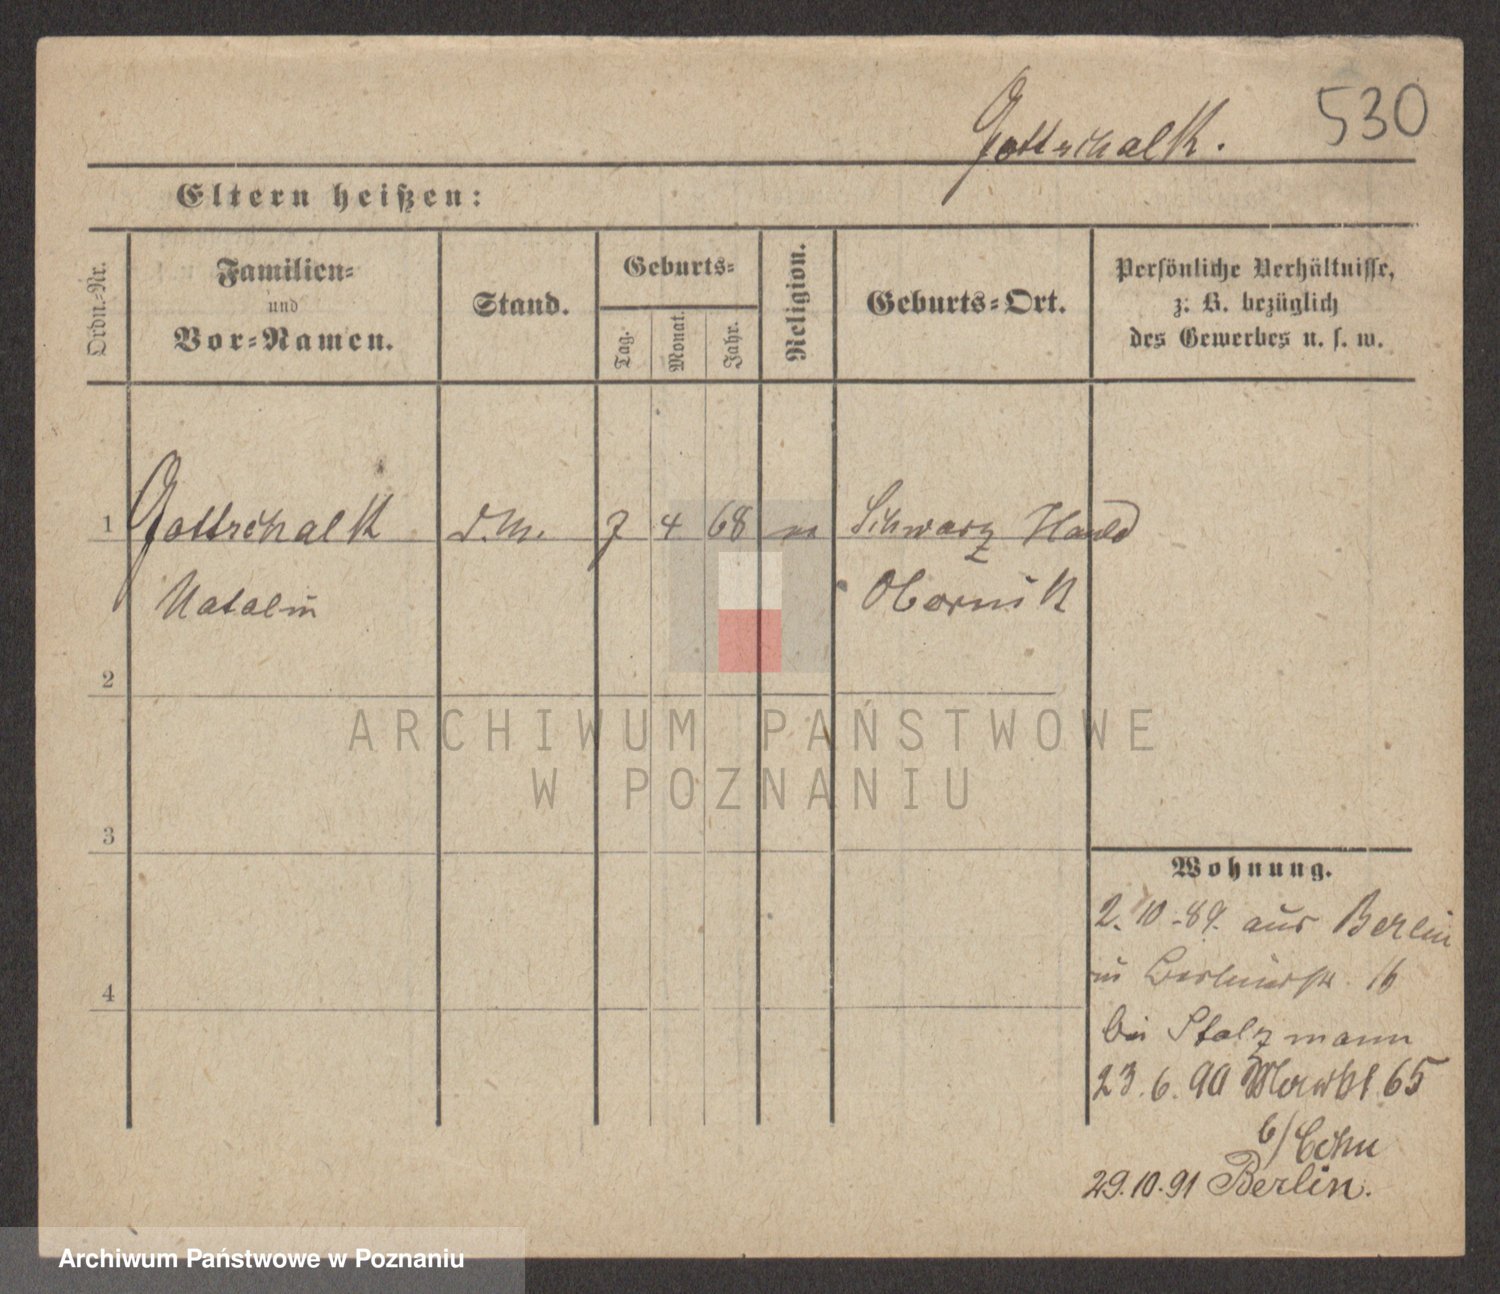 530
Gottschalk.
Eltern heißen:
Ordn.-Nr.
Familien-
und
Vor-Namen.
Stand.
Geburts-
Tag.
Monat.
Jahr.
Religion.
Geburts-Ort.
Persönliche Verhältnisse,
z. B. bezüglich
des Gewerbes u. s. w.
1 Gottschalk d. M. 7 4 68 m Schwarz Hauld
Natalin Obornik
2
3
4
Wohnung.
2. 10 -89. aus Berlin
in Berlinerstr. 16
bei Stolzmann
23. 6. 90 Markt 65
b/ Cohn
29.10.91 Berlin.
ARCHIWUM PAŃSTWOWE
W POZNANIU
Archiwum Państwowe w Poznaniu